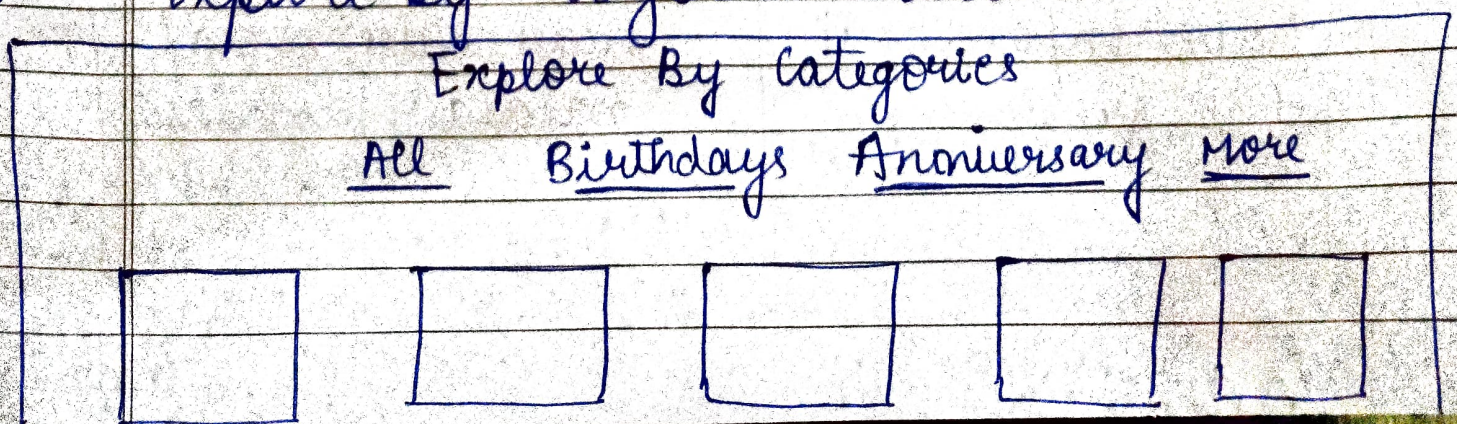 Explore By Categories
All Birthdays Annniversary More